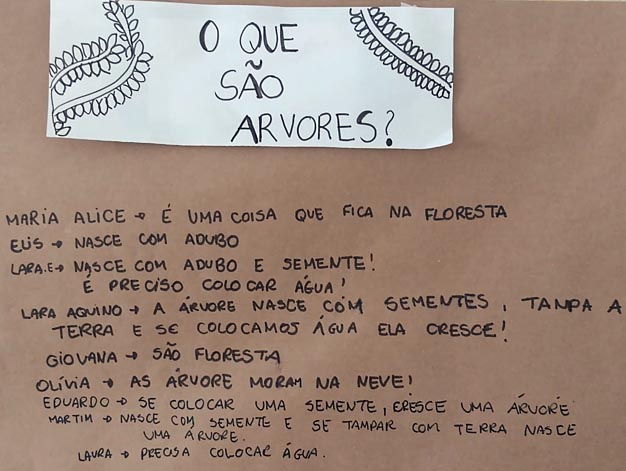 O QUE
SÃO
ARVORES?
MARIA ALICE → É UMA COISA QUE FICA NA FLORESTA
ELIS → NASCE COM ADUBO
LARA.E → NASCE COM ADUBO E SEMENTE!
É PRECISO COLOCAR ÁGUA!
LARA AQUINO → A ÁRVORE NASCE COM SEMENTES, TAMPA A
TERRA E SE COLOCAMOS ÁGUA ELA CRESCE!
GIOVANA → SÃO FLORESTA
OLÍVIA → AS ÁRVORE MORAM NA NEVE!
EDUARDO → SE COLOCAR UMA SEMENTE, CRESCE UMA ÁRVORE
MARTIM → NASCE COM SEMENTE E SE TAMPAR COM TERRA NASCE
UMA ÁRVORE.
LAURA → PRECISA COLOCAR ÁGUA.